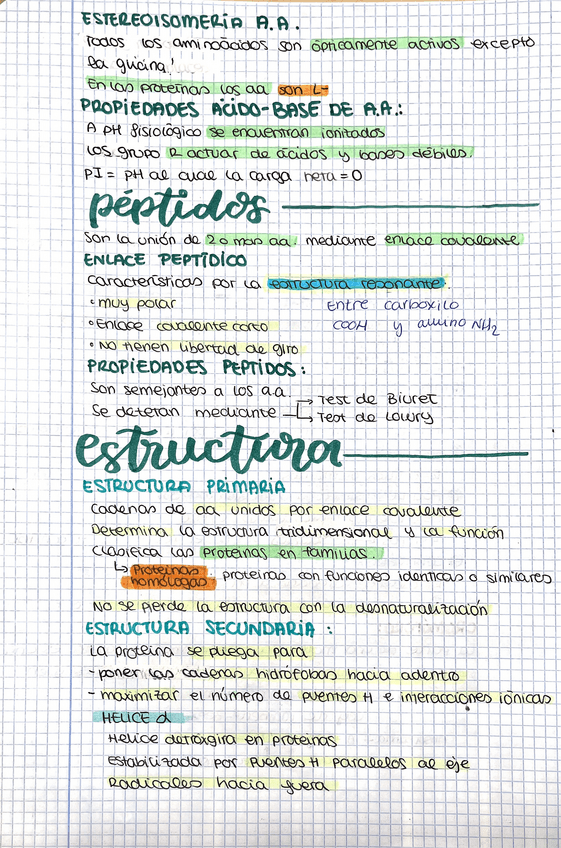 ESTEREOISOMERÍA A.A.
Todos los aminoácidos son ópticamente activos excepto
la glicina!
En las proteínas los aa son L-
PROPIEDADES ÁCIDO-BASE DE A.A.:
A pH fisiológico se encuentran ionizados
Los grupo R actuar de ácidos y bases débiles.
PI = PH al cual la carga neta = 0
péptidos
Son la unión de 2 o mas aa. mediante enlace covalente
ENLACE PEPTÍDICO
Características por la estructura resonante.
• muy polar
Entre carboxilo
• Enlace covalente corto
COOH y amino NH2
• No tienen libertad de giro
PROPIEDADES PEPTIDOS:
Son semejantes a los a.a.
→ Test de Biuret
Se detetan mediante
→ Test de Lowry
estructura
ESTRUCTURA PRIMARIA
Cadenas de aa unidos por enlace covalente
Determina la estructura tridimensional y la función
Clasifica las proteínas en familias.
↳ Proteínas homólogas: proteínas con funciones identicas o similares
No se pierde la estructura con la desnaturalización
ESTRUCTURA SECUNDARIA:
La proteína se pliega para
- poner las cadenas hidrófobas hacia adentro
- maximizar el número de puentes H e interacciones iónicas
HELICE α
Helice detroxgira en proteínas
Estabilizada por puentes H paralelos al eje
Radicales hacia fuera